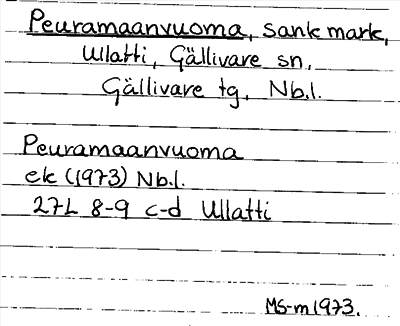 Peuramaanvuoma, sank mark,
Ullatti, Gällivare sn.
Gällivare tg, Nb.l.
Peuramaanvuoma
ek (1973) Nb.l.
27L 8-9 c-d Ullatti
MS-m 1973.